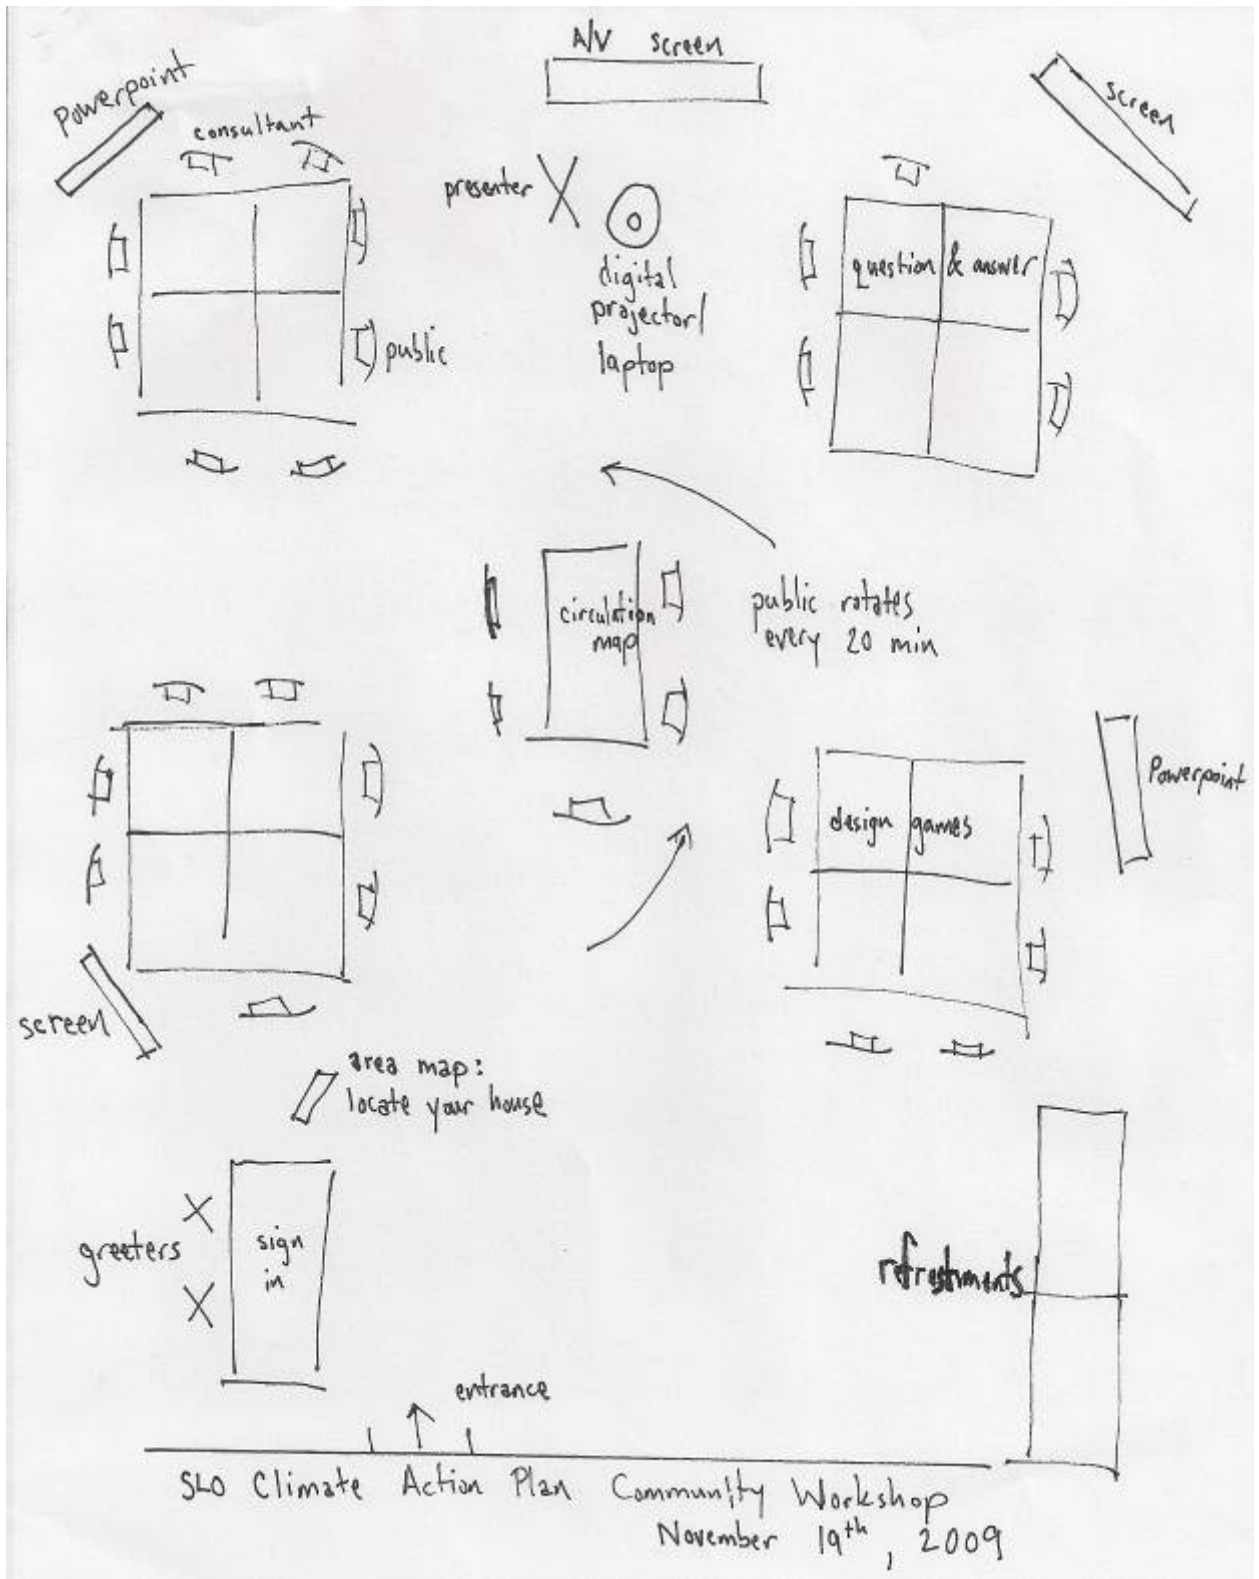 A/V screen
Powerpoint
consultant
screen
presenter
question & answer
digital
projector/
laptop
public
circulation
map
public rotates
every 20 min
Powerpoint
design games
screen
area map:
locate your house
greeters
sign
in
refreshments
entrance
SLO Climate Action Plan Community Workshop
November 19th, 2009